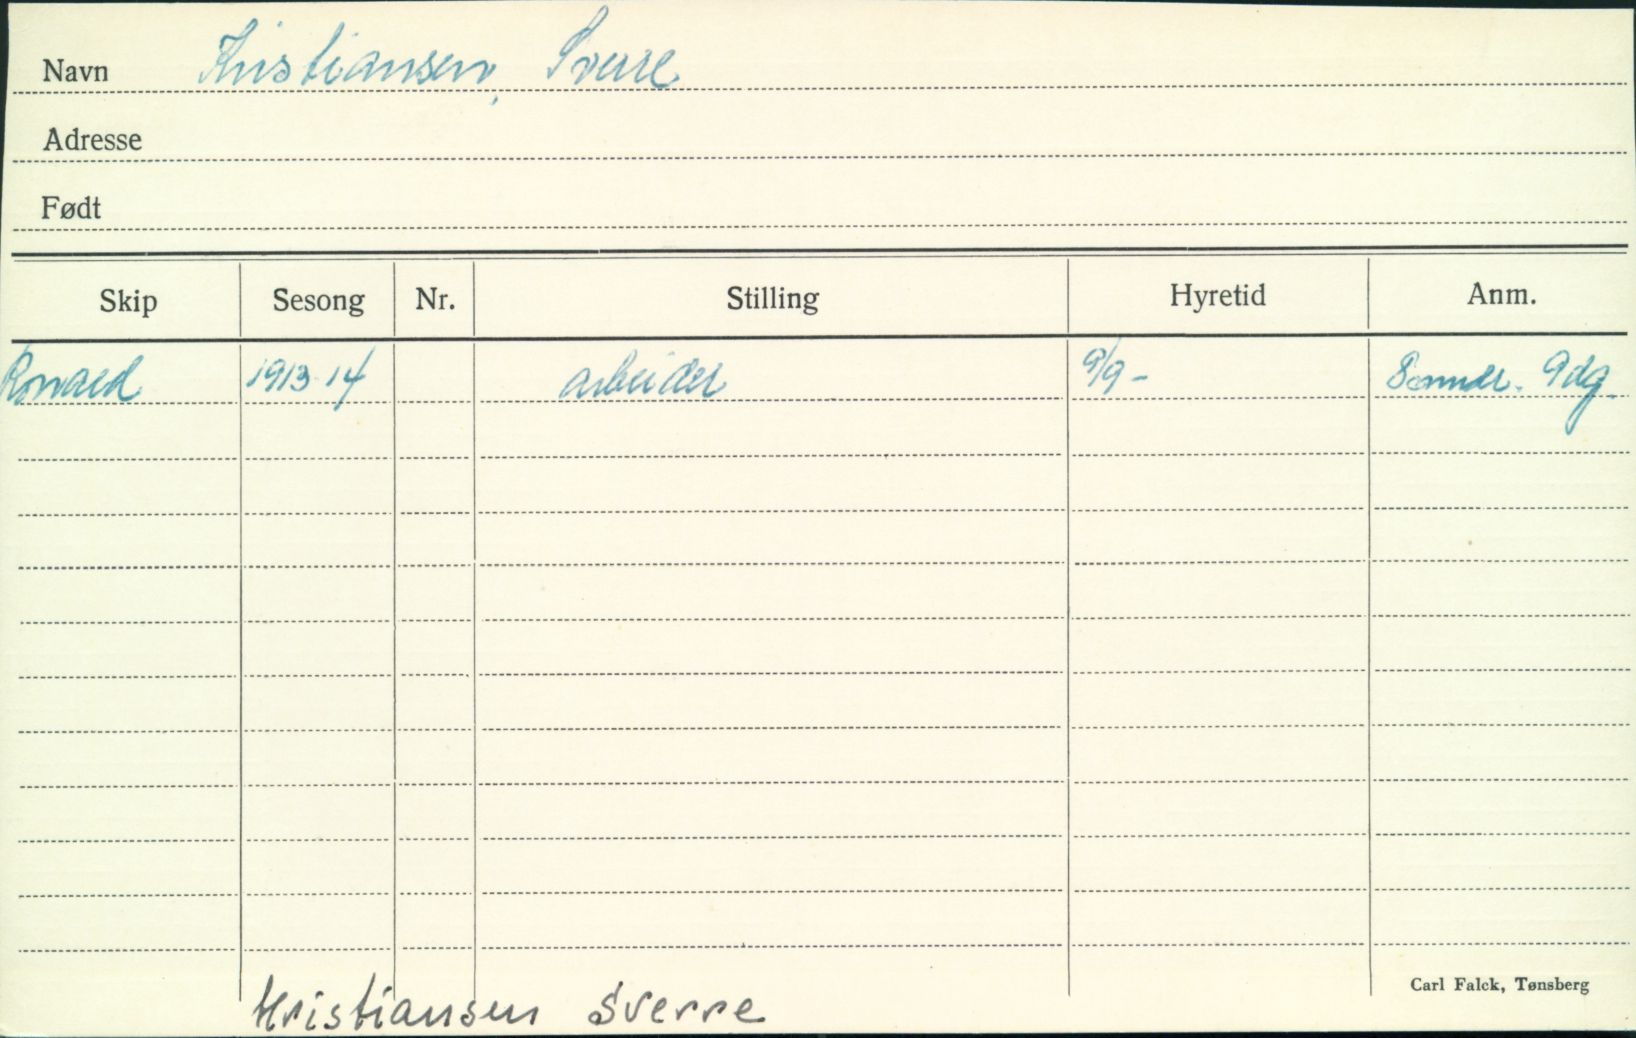 Navn Kristiansen, Sverre
Adresse
Født
Skip Sesong Nr. Stilling Hyretid Anm.
Ronald 1913-14 arbeider 9/9- 8 mndr. 9 dg.
Carl Falck, Tønsberg
Kristiansen Sverre